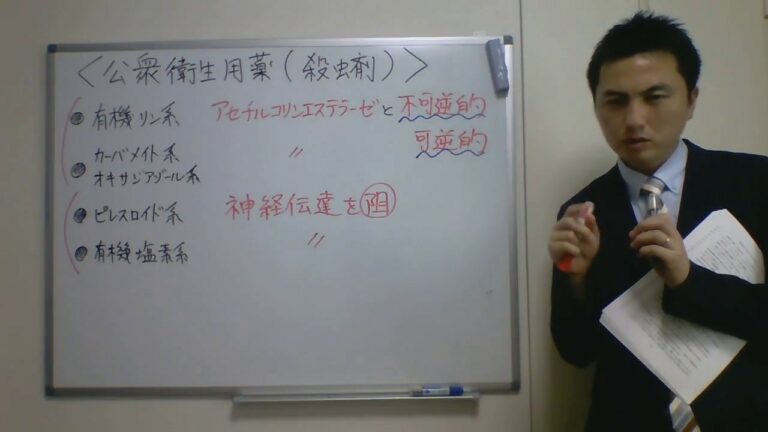 <公衆衛生用薬(殺虫剤)>
●有機リン系 アセチルコリンエステラーゼと不可逆的
●カーバメイト系 〃 可逆的
オキサジアゾール系
●ピレスロイド系 神経伝達を阻
●有機塩素系 〃